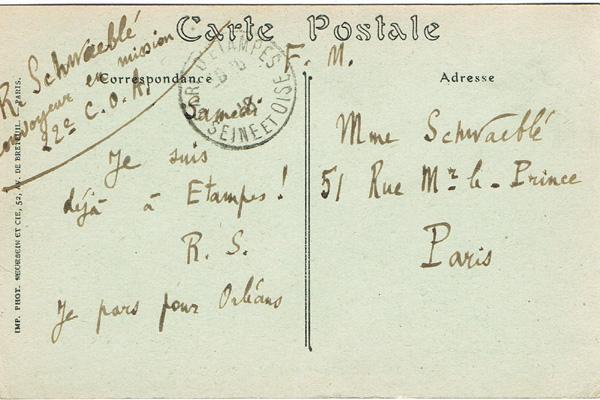 Carte Postale
R. Schwaeblé
convoyeur en mission
22e C.O.A.
F. M.
Correspondance
Adresse
ETAMPES
SEINE ET OISE
Samedi
Je suis
déjà à Etampes !
R. S.
Je pars pour Orléans
Mme Schwaeblé
51 Rue Mr le - Prince
Paris
IMP. PHOT. NEURDEIN ET CIE, 52, AV. DE BRETEUIL. - PARIS.